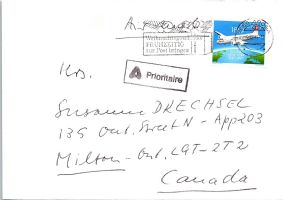 Weihnachtspost
FRÜHZEITIG
zur Post bringen
A Prioritaire
Mrs.
Susanne DRECHSEL
135 Ont. Street N - App 203
Milton - Ont. L9T-2T2
Canada